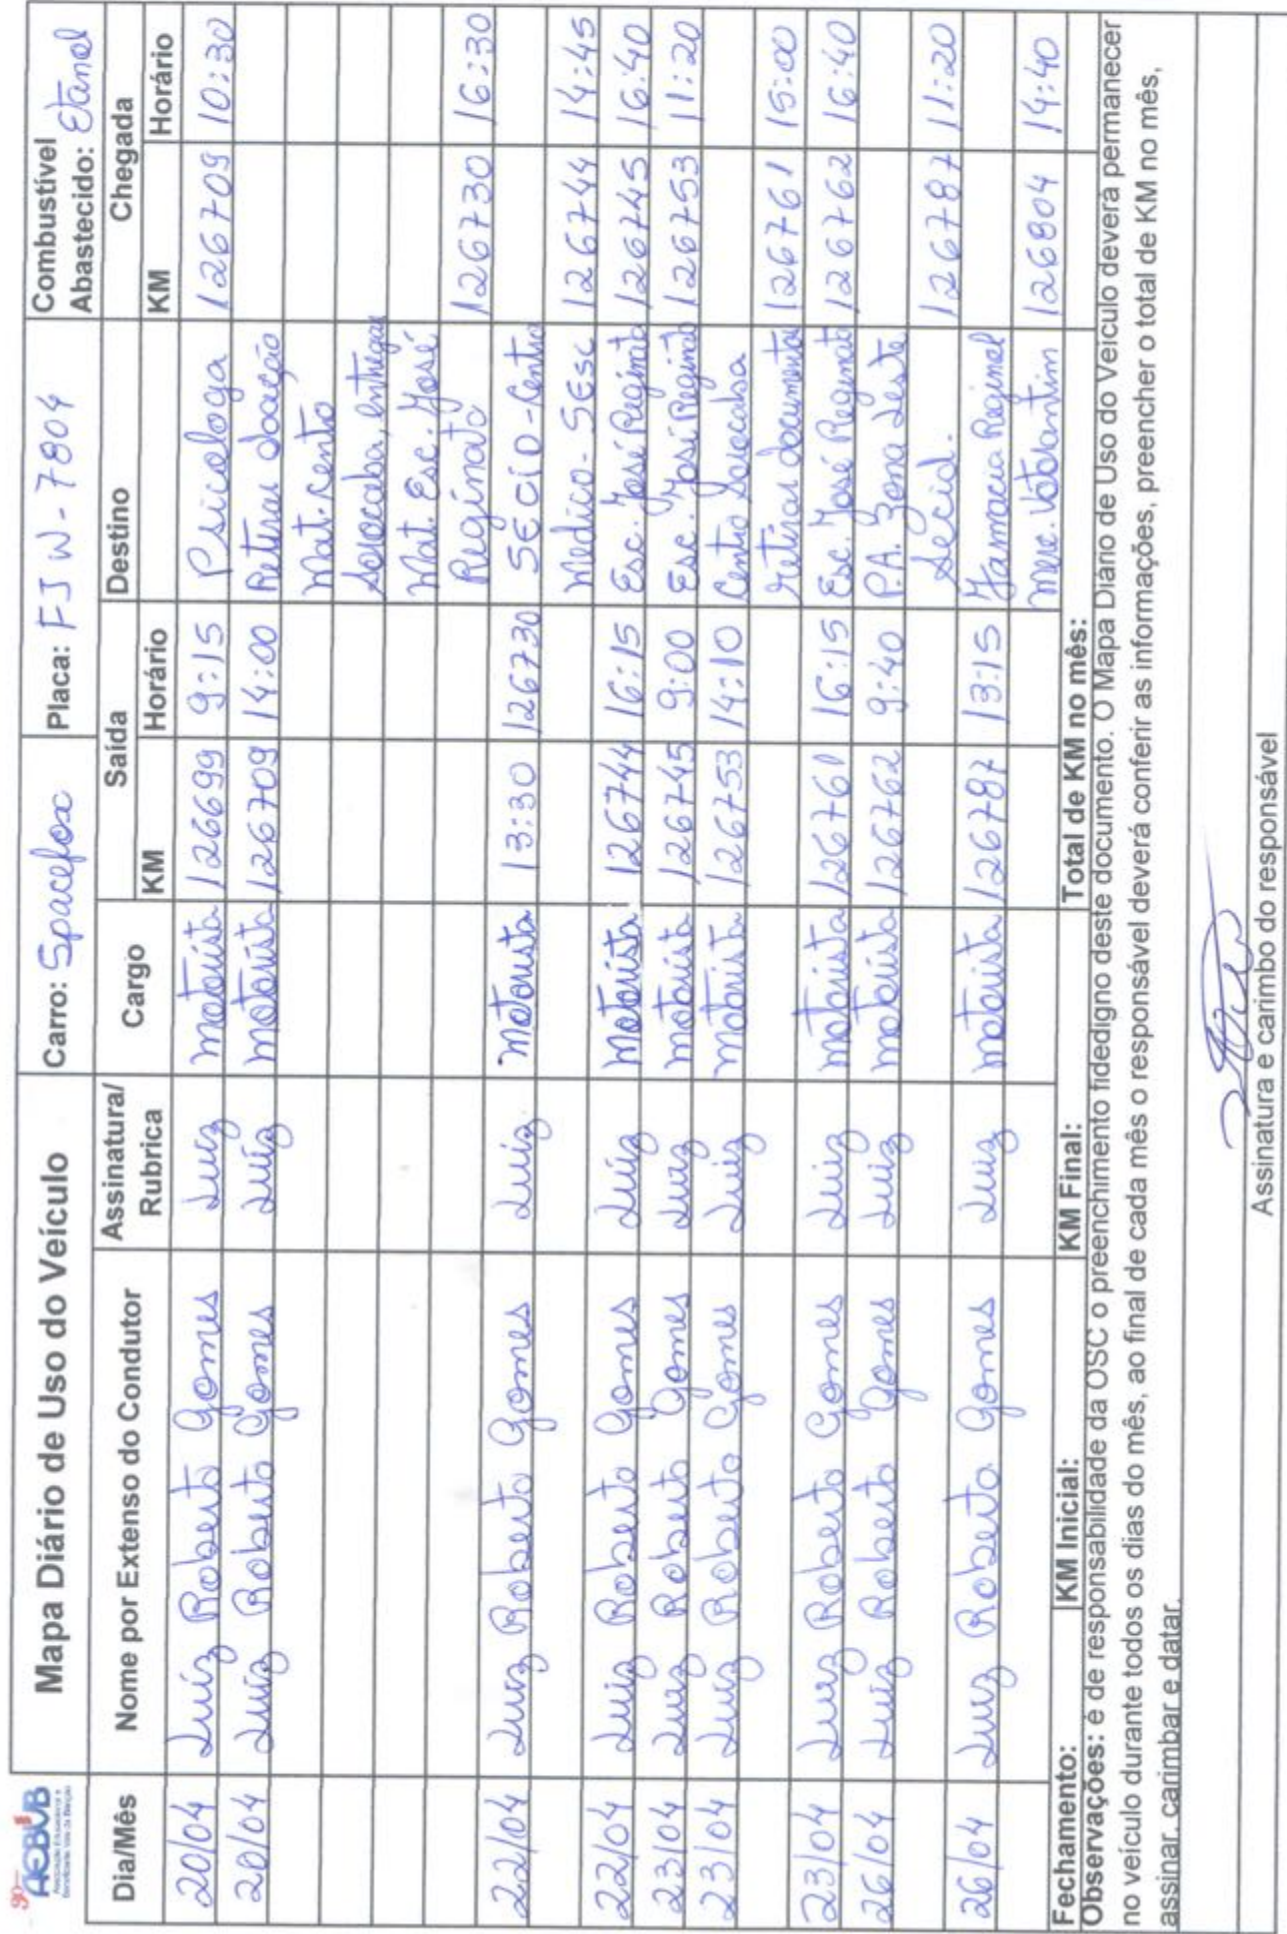 90
AEBVB
Mapa Diário de Uso do Veículo Carro: Spacefox Placa: FJW-7804 Combustível Abastecido: Etanol
Dia/Mês Nome por Extenso do Condutor Assinatura/ Rubrica Cargo Saída Destino Chegada
KM Horário KM Horário
20/04 Luiz Roberto Gomes Luiz motorista 126699 9:15 Psicologa 126709 10:30
20/04 Luiz Roberto Gomes Luiz motorista 126709 14:00 Retirar doação
Mat. Cento
Sorocaba, entregar
Mat. Esc. José
Reginato 126730 16:30
22/04 Luiz Roberto Gomes Luiz motorista 13:30 126730 SECID-Centro
Medico-SESC 126744 14:45
22/04 Luiz Roberto Gomes Luiz motorista 126744 16:15 Esc. José Reginato 126745 16:40
23/04 Luiz Roberto Gomes Luiz motorista 126745 9:00 Esc. José Reginato 126753 11:20
23/04 Luiz Roberto Gomes Luiz motorista 126753 14:10 Centro Sorocaba
retirar documentos 126761 15:00
23/04 Luiz Roberto Gomes Luiz motorista 126761 16:15 Esc. José Reginato 126762 16:40
26/04 Luiz Roberto Gomes Luiz motorista 126762 9:40 P.A. Zona Leste
Secid. 126787 11:20
26/04 Luiz Roberto Gomes Luiz motorista 126787 13:15 Farmacia Regional
Merc. Votorantim 126804 14:40
Fechamento: KM Inicial: KM Final: Total de KM no mês:
Observações: é de responsabilidade da OSC o preenchimento fidedigno deste documento. O Mapa Diário de Uso do Veículo deverá permanecer
no veículo durante todos os dias do mês, ao final de cada mês o responsável deverá conferir as informações, preencher o total de KM no mês,
assinar, carimbar e datar.
Assinatura e carimbo do responsável